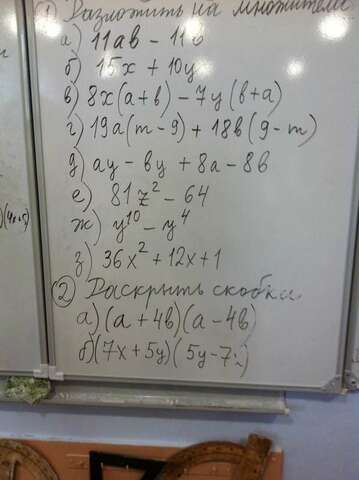 ① Разложить на множители
а) 11ав – 11в
б) 15x + 10y
в) 8x(а+в) – 7y(в+а)
г) 19а(m – 9) + 18в(9 – m)
д) ау – ву + 8а – 8в
е) 81z² – 64
ж) y¹⁰ – y⁴
з) 36x² + 12x + 1
② Раскрыть скобки
а) (а + 4в)(а – 4в)
б) (7x + 5y)(5y – 7